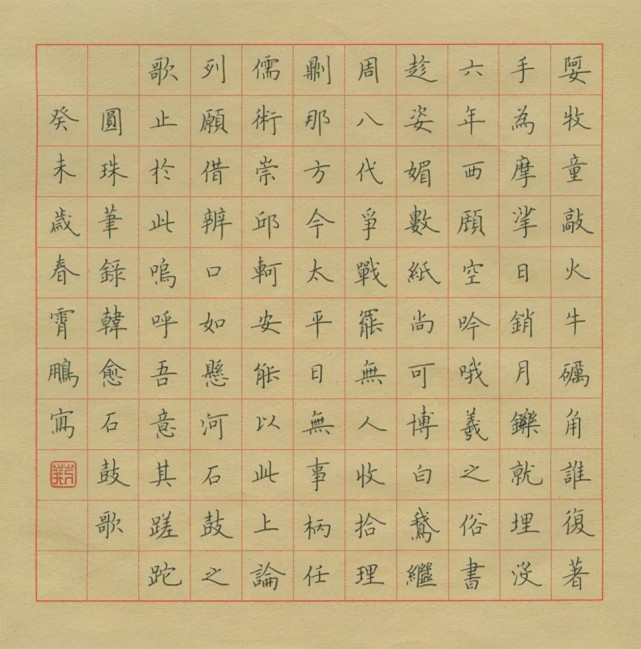 娿牧童敲火牛礪角誰復著
手為摩挲日銷月鑠就埋沒
六年西顧空吟哦羲之俗書
趁姿媚數紙尚可博白鵝繼
周八代爭戰罷無人收拾理
則那方今太平日無事柄任
儒術崇邱軻安能以此上論
列願借辨口如懸河石鼓之
歌止於此嗚呼吾意其蹉跎
圓珠筆錄韓愈石鼓歌
癸未歲春霄鵬寫